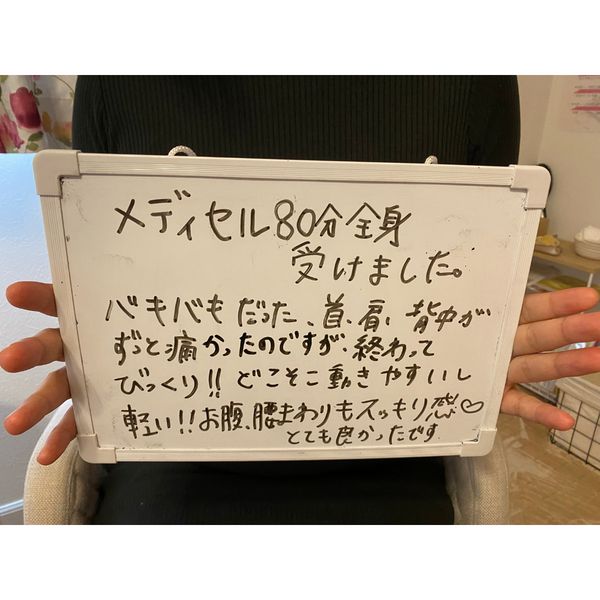 メディセル80分全身
受けました。
バキバキだった、首、肩、背中が
ずっと痛かったのですが、終わって
びっくり!!どこそこ動きやすいし
軽い!!お腹、腰まわりもスッキリ感♡
とても良かったです